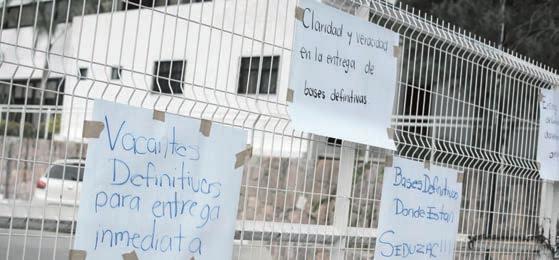 Claridad y veracidad
en la entrega de
bases definitivas
Vacantes
Definitivas
para entrega
inmediata
Bases Definitivas
Donde Estan
SEDUZAC!!!